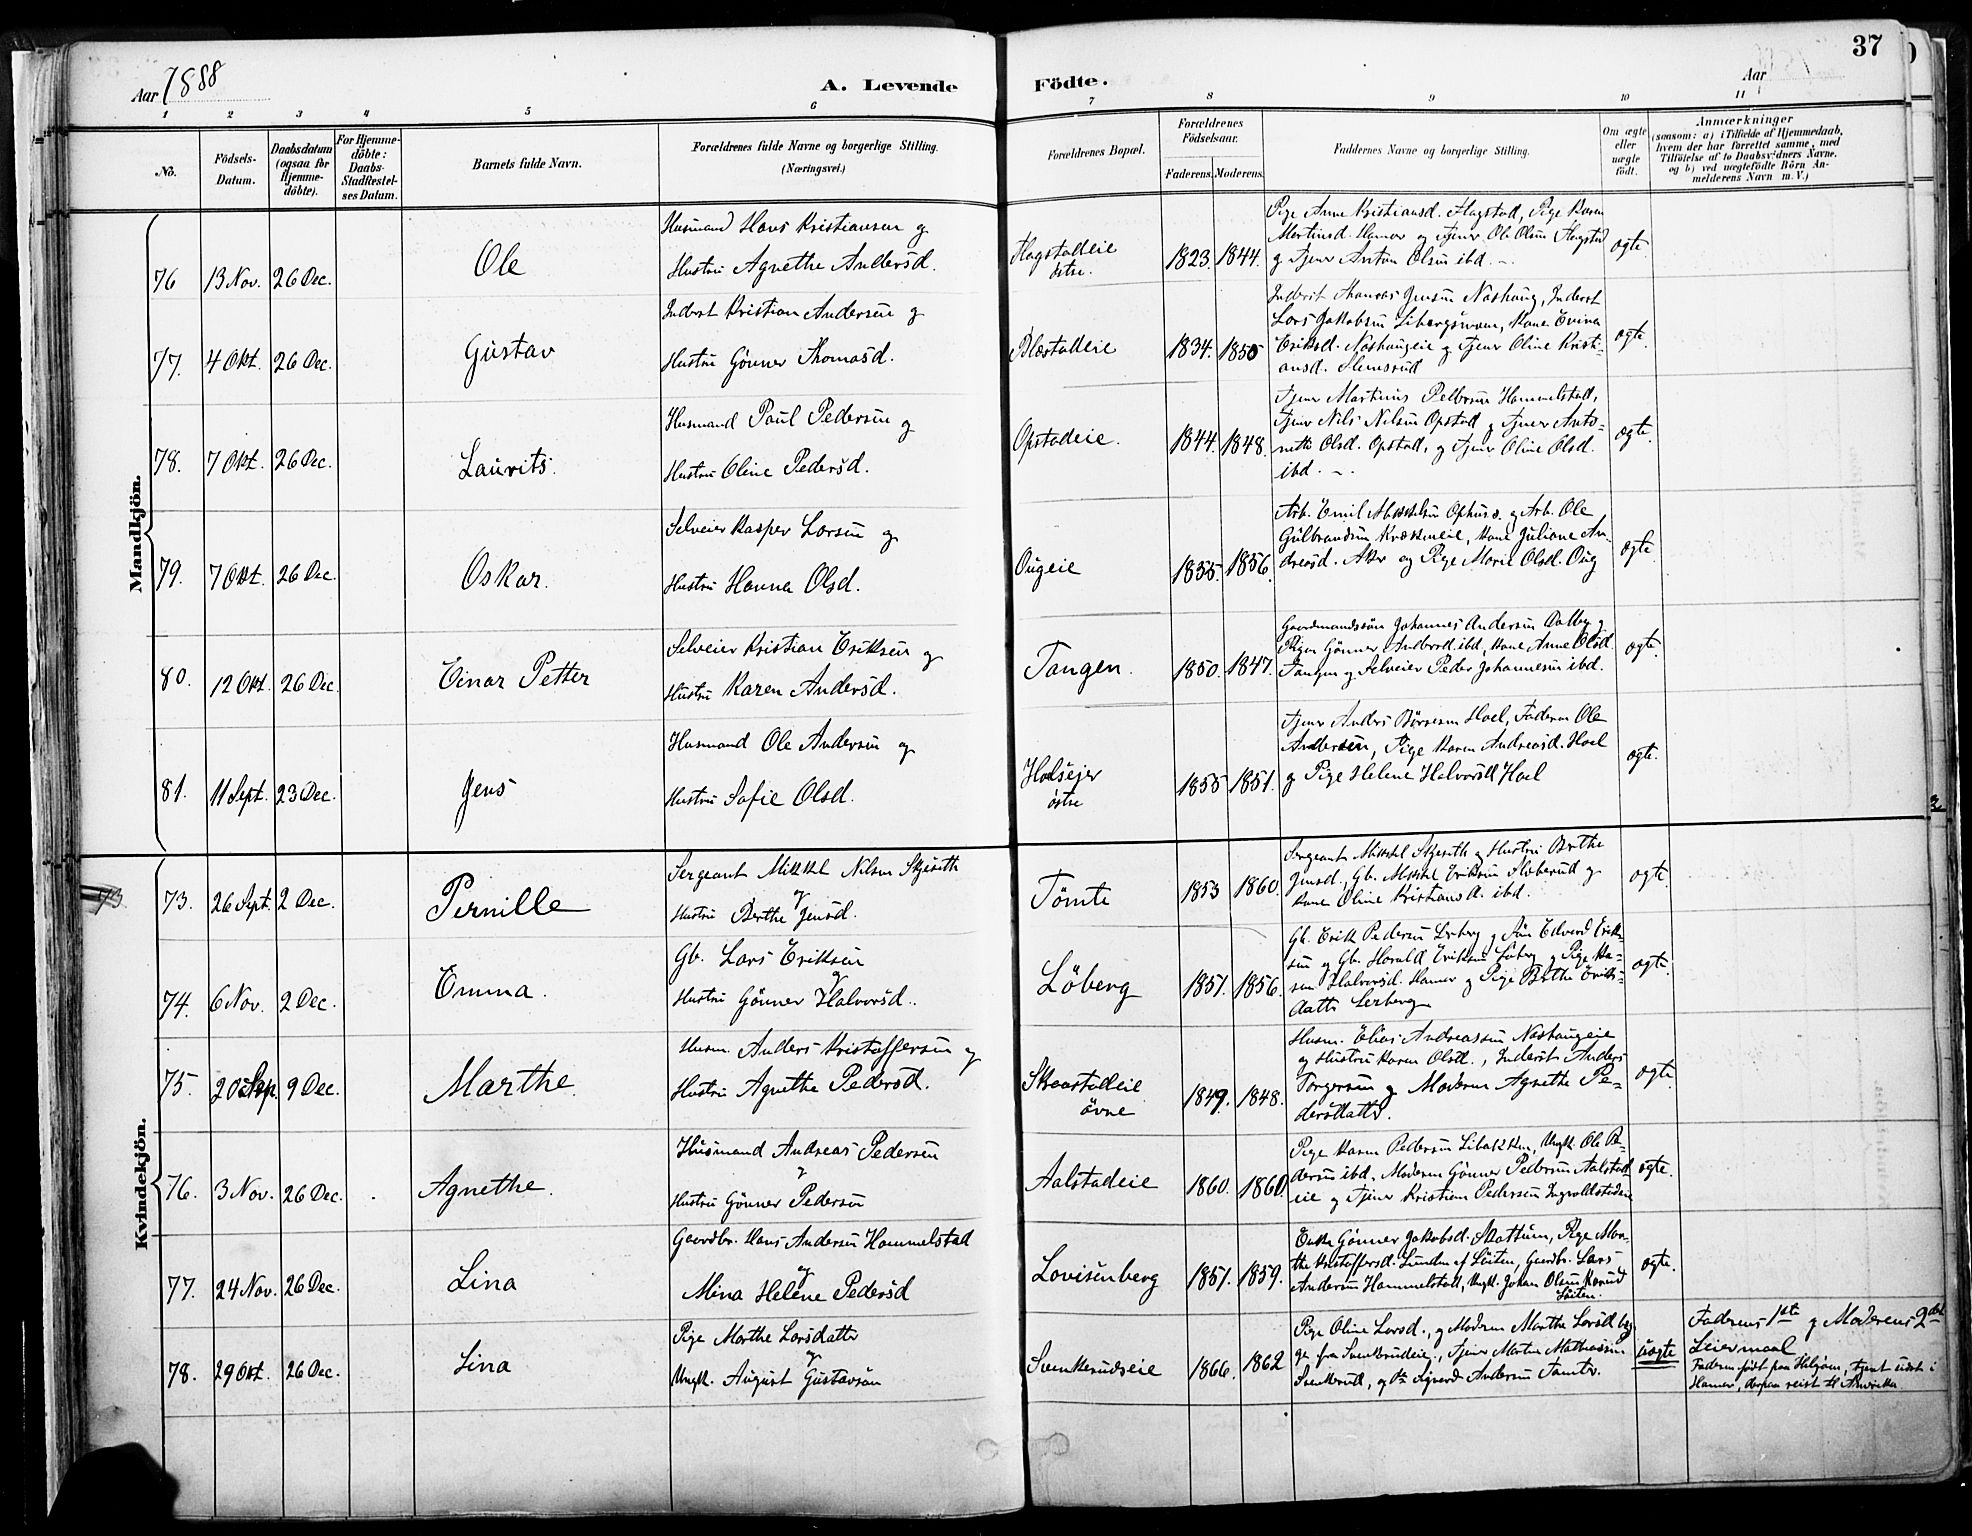 37
Aar 1888
A. Levende Födte.
Aar
1 2 3 4 5 6 7 8 9 10 11
No.
Födsels-Datum.
Daabsdatum (ogsaa for Hjemme-döbte).
For Hjemme-döbte: Daabs-Stadfestel-ses Datum.
Barnets fulde Navn.
Forældrenes fulde Navne og borgerlige Stilling. (Næringsvei.)
Forældrenes Bopæl.
Forældrenes Födselsaar.
Faderens. Moderens.
Faddernes Navne og borgerlige Stilling.
Om ægte eller uægte födt.
Anmærkninger
(saasom: a) i Tilfælde af Hjemmedaab,
hvem der har forrettet samme, med
Tilföielse af to Daabsvidners Navne,
og b) ved uægtefödte Börn An-
melderens Navn m. V.)
Mandkjön.
76 13 Nov. 26 Dec. Ole
Husmand Hans Kristiansen og
Hustru Agnethe Andersd.
Hagstadeie østre. 1823. 1844.
Pige Anne Kristiansd. Hagstad, Pige Karen
Martinsd. Hamar og Tjener Ole Olsen Hagstad
og Tjener Anton Olsen ibd. -
ægte.
77. 4 Okt. 26 Dec. Gustav
Inderst Kristian Andersen og
Hustru Gønner Thomasd.
Blæstadeie 1834. 1850
Inderst Thomas Jensen Nashaug, Inderst
Lars Jakobsen Libergsvæen, Kone Evina
Eriksd. Nashaugeie og Tjener Oline Kristi-
ansd. Slemsrud
ægte.
78. 7 Okt. 26 Dec. Laurits.
Husmand Paul Pedersen og
Hustru Oline Pedersd.
Opstadeie. 1844. 1848.
Tjener Martinius Pedersen Hammelstad,
Tjener Nils Nilsen Opstad og Tjener Anto-
nette Olsd. Opstad, og Tjener Oline Olsd.
ibd. -
ægte.
79. 7 Okt. 26 Dec. Oskar.
Selveier Kasper Larsen og
Hustru Hanna Olsd.
Ougeie 1855. 1856.
Arb. Emil Mikkelsen Ophus. og Arb. Ole
Gulbrandsen Kvæsmeie, Kone Juliane An-
dreasd. Aker og Pige Marie Olsd. Oug
ægte
80. 12 Okt. 26 Dec. Einar Petter
Selveier Kristian Eriksen og
Hustru Karen Andersd.
Tangen. 1850. 1847.
Gaardmandssøn Johannes Andersen Dalby og
Pigen Gønner Andersd. ibd, Kone Anne Olsd.
Tangen og Selveier Peder Johannesen ibd.
ægte.
81. 11 Sept. 23 Dec. Jens
Husmand Ole Andersen og
Hustru Sofie Olsd.
Holsejer østre 1855 1851.
Tjener Anders Børresen Hoel, Faderen Ole
Andersen, Pige Karen Andreasd. Hoel
og Pige Helene Halvorsd Hoel
ægte.
Kvindekjön.
73
73. 26 Sept. 2 Dec. Pernille
Sergeant Mikkel Nilsen Skjeseth
og
Hustru Berthe Jensd.
Tømte 1853 1860.
Sergeant Mikkel Skjeseth og Hustru Berthe
Jensd., Gb. Mikkel Eriksen Floberud og
Kone Oline Kristiansd. ibd.
ægte.
74. 6 Nov. 2 Dec. Emma.
Gb. Lars Eriksen
og
Hustru Gønner Halvorsd.
Løberg 1851. 1856.
Gb. Erik Pedersen Lerberg og Søn Edvard Erik-
sen og Gb. Harald Eriksen Løberg og Pige Ka-
ren Halvorsd. Hamar og Pige Berthe Eriks-
datter Lerberg
ægte.
75. 20 Sep. 9 Dec. Marthe
Husm. Anders Kristoffersen og
Hustru Agnethe Pedersd.
Skaarstadeie øvne 1849. 1848.
Husm. Elias Andreassen Nashaugeie
og Hustru Karen Olsd., Inderst Anders
Torgersen og Moderen Agnethe Pe-
dersdatter.
ægte.
76. 3 Nov. 26 Dec. Agnethe.
Husmand Andreas Pedersen
og
Hustru Gønner Pedersen
Aalstadeie 1860. 1860.
Pige Karen Pedersen Libakken, Ungk. Ole Pe-
dersen ibd., Moderen Gønner Pedersen Aalstad-
eie og Tjener Kristian Pedersen Ingvoldstadeie
ægte.
77. 24 Nov. 26 Dec. Lina
Gaardbr. Hans Andersen Hammelstad
og
Mina Helene Pedersd
Lovisenberg 1851. 1859.
Enke Gønner Jakobsd. Skattum, Pige Mar-
the Kristoffersd. Lunden af Løiten, Gaardbr. Lars
Andersen Hammelstad, Ungk. Johan Olsen Korud
Løiten.
ægte.
78. 29 Okt. 26 Dec. Lina
Pige Marthe Larsdatter
og
Ungk. August Gustavsøn
Svenkerudseie 1866. 1862
Pige Oline Larsd., og Moderen Marthe Larsd beg-
ge fra Svenkerudeie, Tjener Martin Mathiassen
Svenkerud, og Ds. Sigvard Andersen Tomter.
uægte
Faderens 1ste og Moderens 2det
Leiermaal
Faderen født paa Helgøen, tjent sidst i
Hamar, derpaa reist til Amerika.